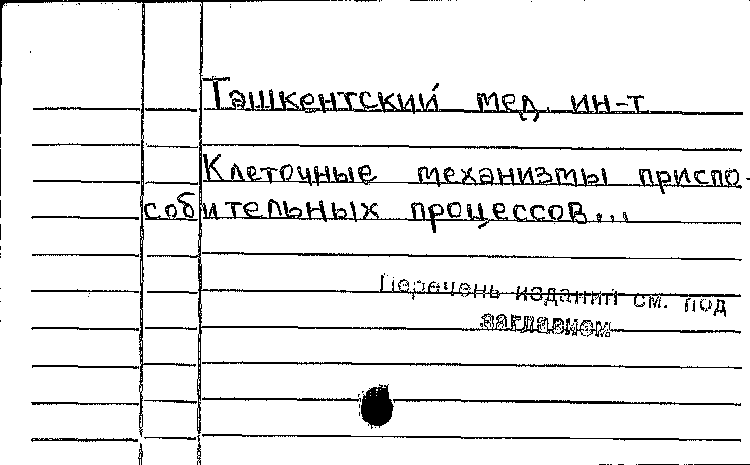 Ташкентский мед. ин-т
Клеточные механизмы приспо-
собительных процессов...
Перечень изданий см. под
заглавием